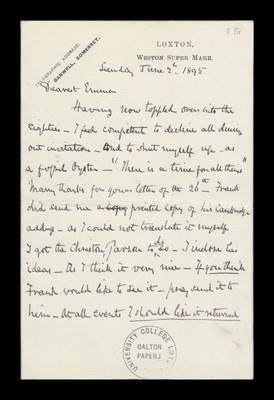 TELEGRAPHIC ADDRESS:
BANWELL, SOMERSET.
LOXTON,
WESTON SUPER MARE.
Sunday June 2d. 1895
Dearest Emma
Having now toppled over into the
Eighties - I feel competent to decline all dining
out invitation - and to shut myself up - as
a Oyster - "There is a time for all things"
Many thanks for yours letter of the 26th - Frank
did send me a copy printed copy of his Cambridge
address - as I could not translate it myself
I got the Christon Parson to do so - I inclose his
ideas - As I think it very nice - If you think
Frank would like to see it - pray send it to
him - At all events I should like it returned
UNIVERSITY COLLEGE
GALTON
PAPERS